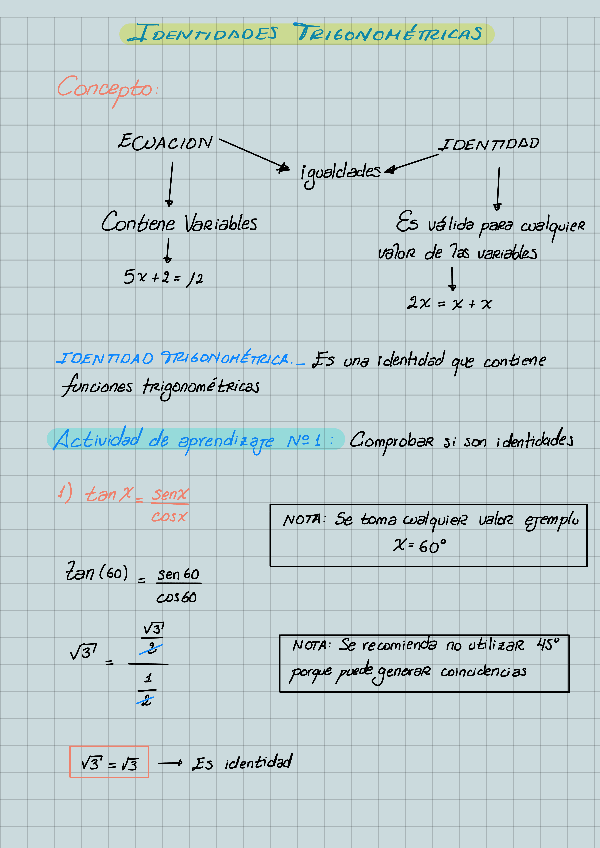 IDENTIDADES TRIGONOMÉTRICAS
Concepto:
ECUACION
IDENTIDAD
igualdades
Contiene Variables
5x + 2 = 12
Es válida para cualquier
valor de las variables
2x = x + x
IDENTIDAD TRIGONOMÉTRICA._ Es una identidad que contiene
funciones trigonométricas
Actividad de aprendizaje Nº1: Comprobar si son identidades
1) tan x = senx / cosx
NOTA: Se toma cualquier valor ejemplo
x = 60°
tan (60) = sen 60 / cos 60
√3 = (√3 / 2) / (1 / 2)
NOTA: Se recomienda no utilizar 45°
porque puede generar coincidencias
√3 = √3 → Es identidad